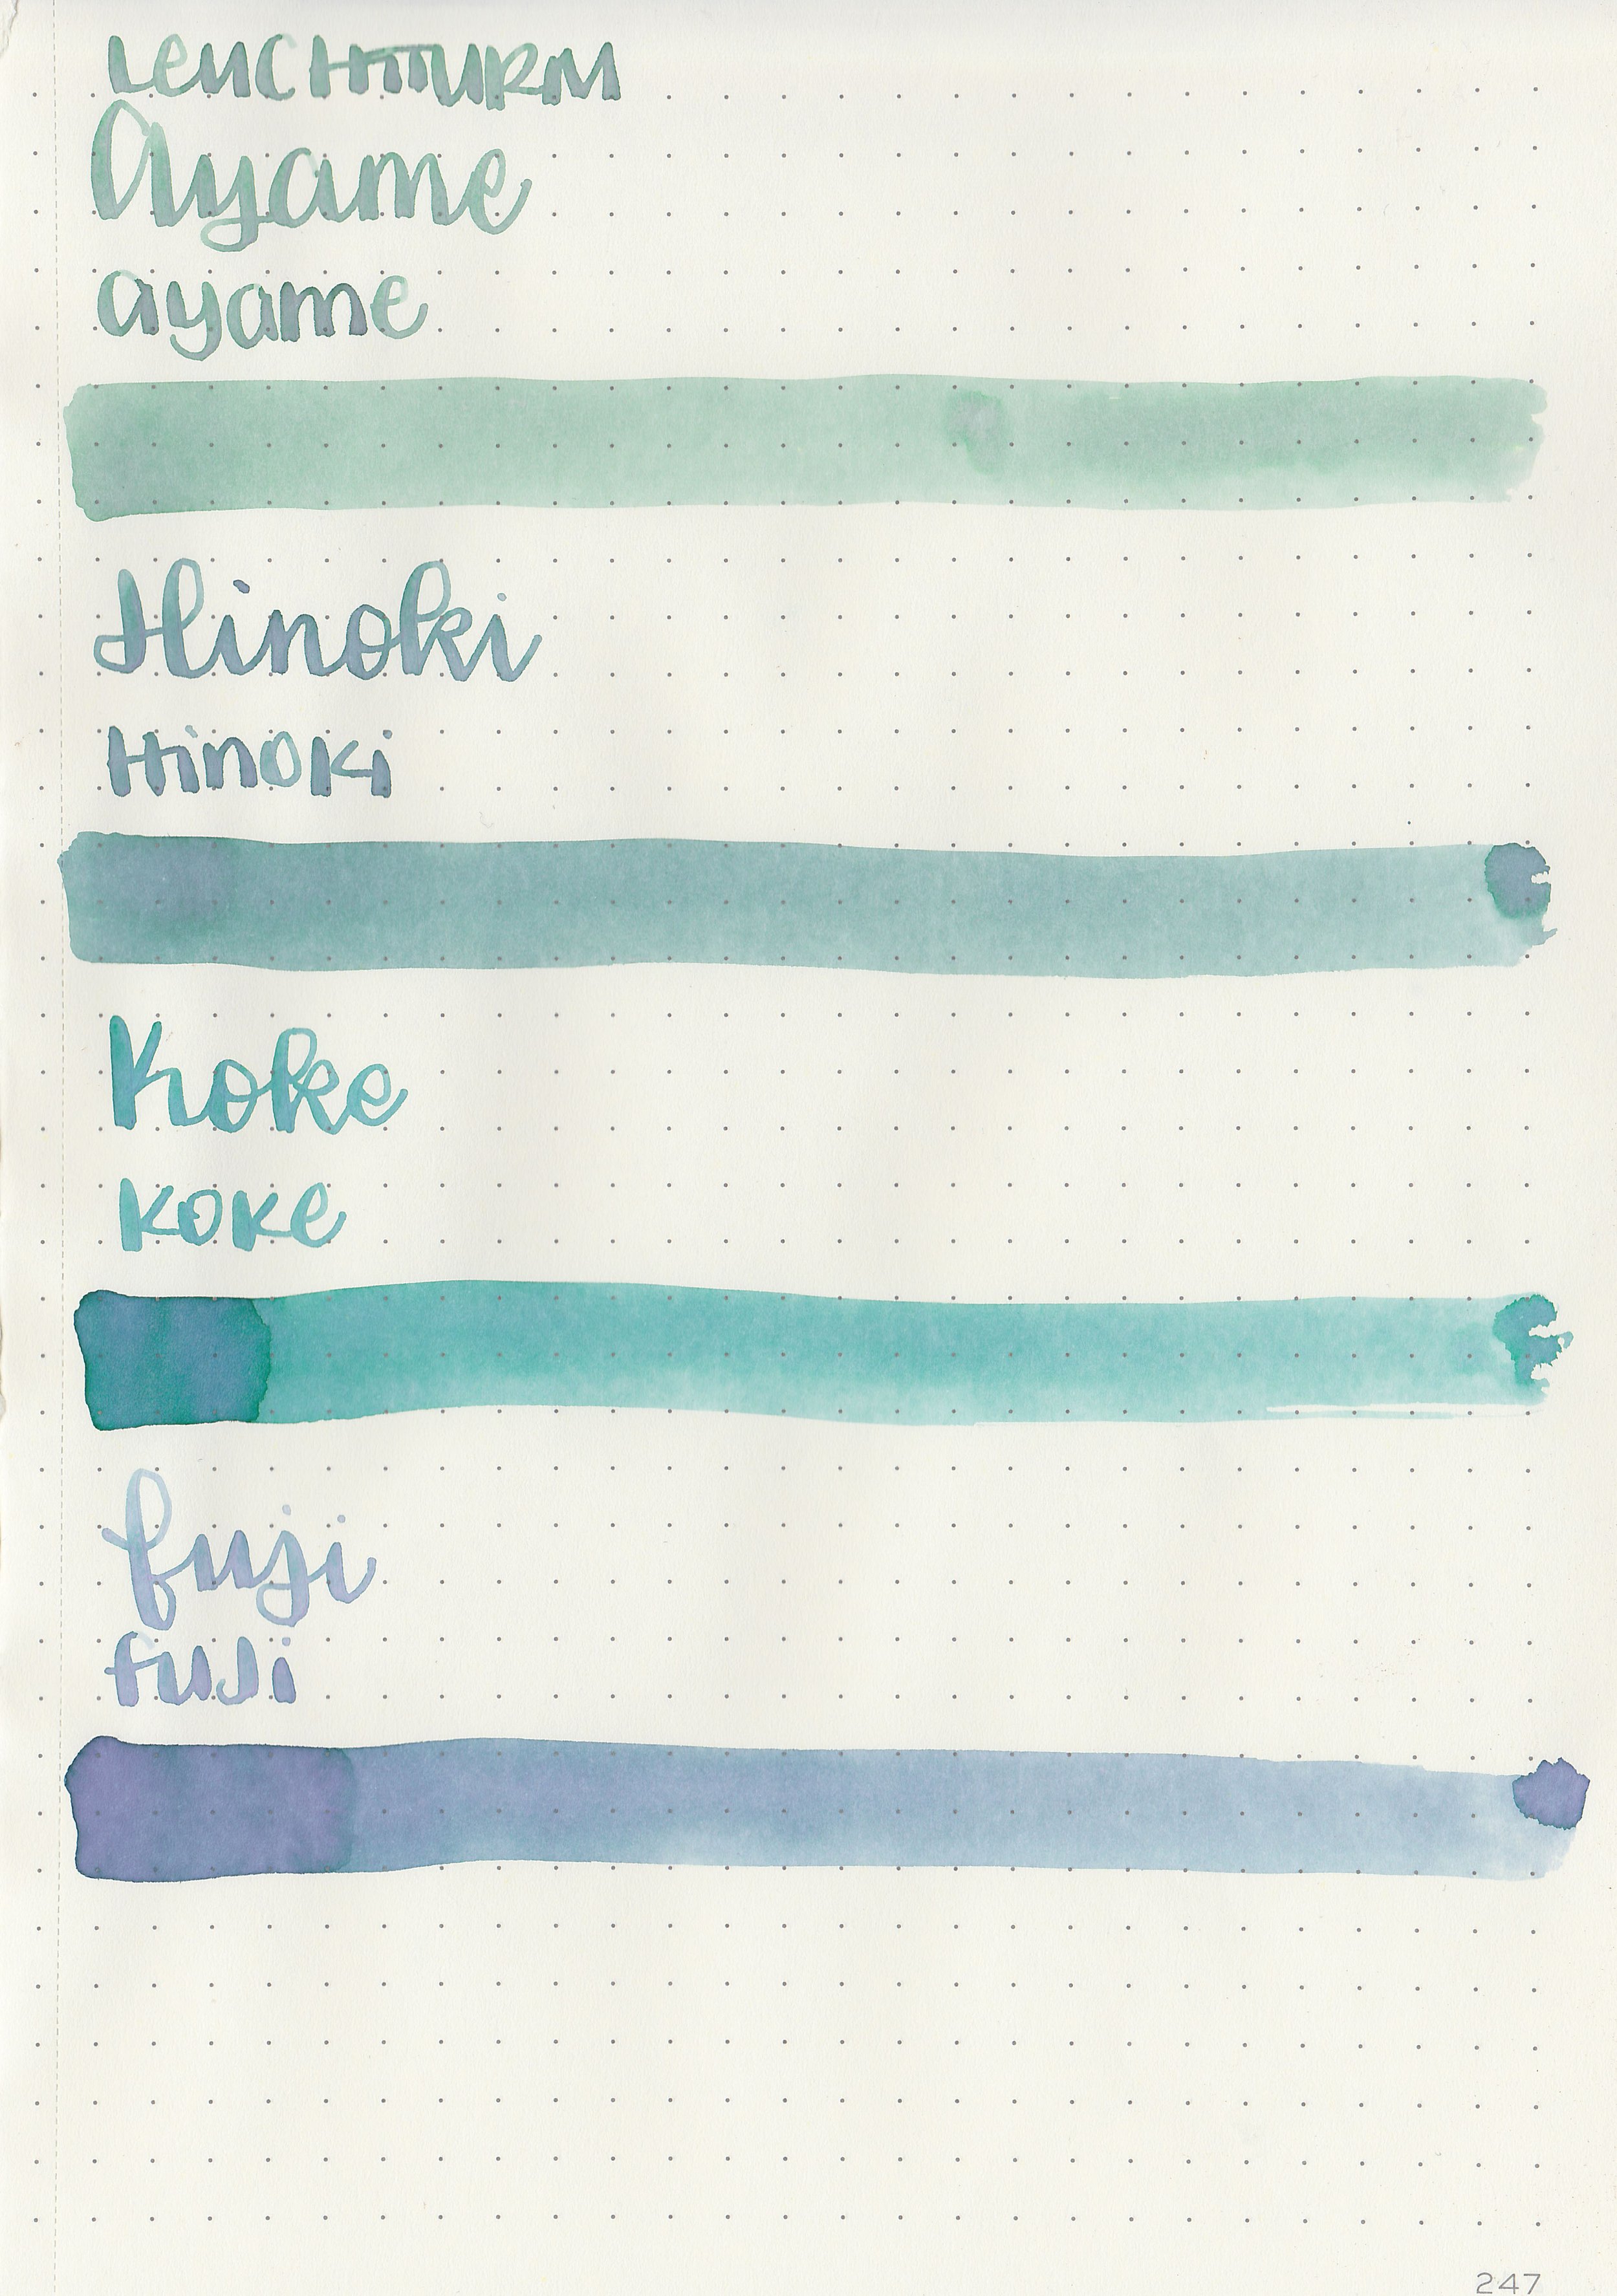 LeUCHTTURM
Ayame
ayame
Hinoki
HinoKi
Koke
KOKe
fuji
fuji
247